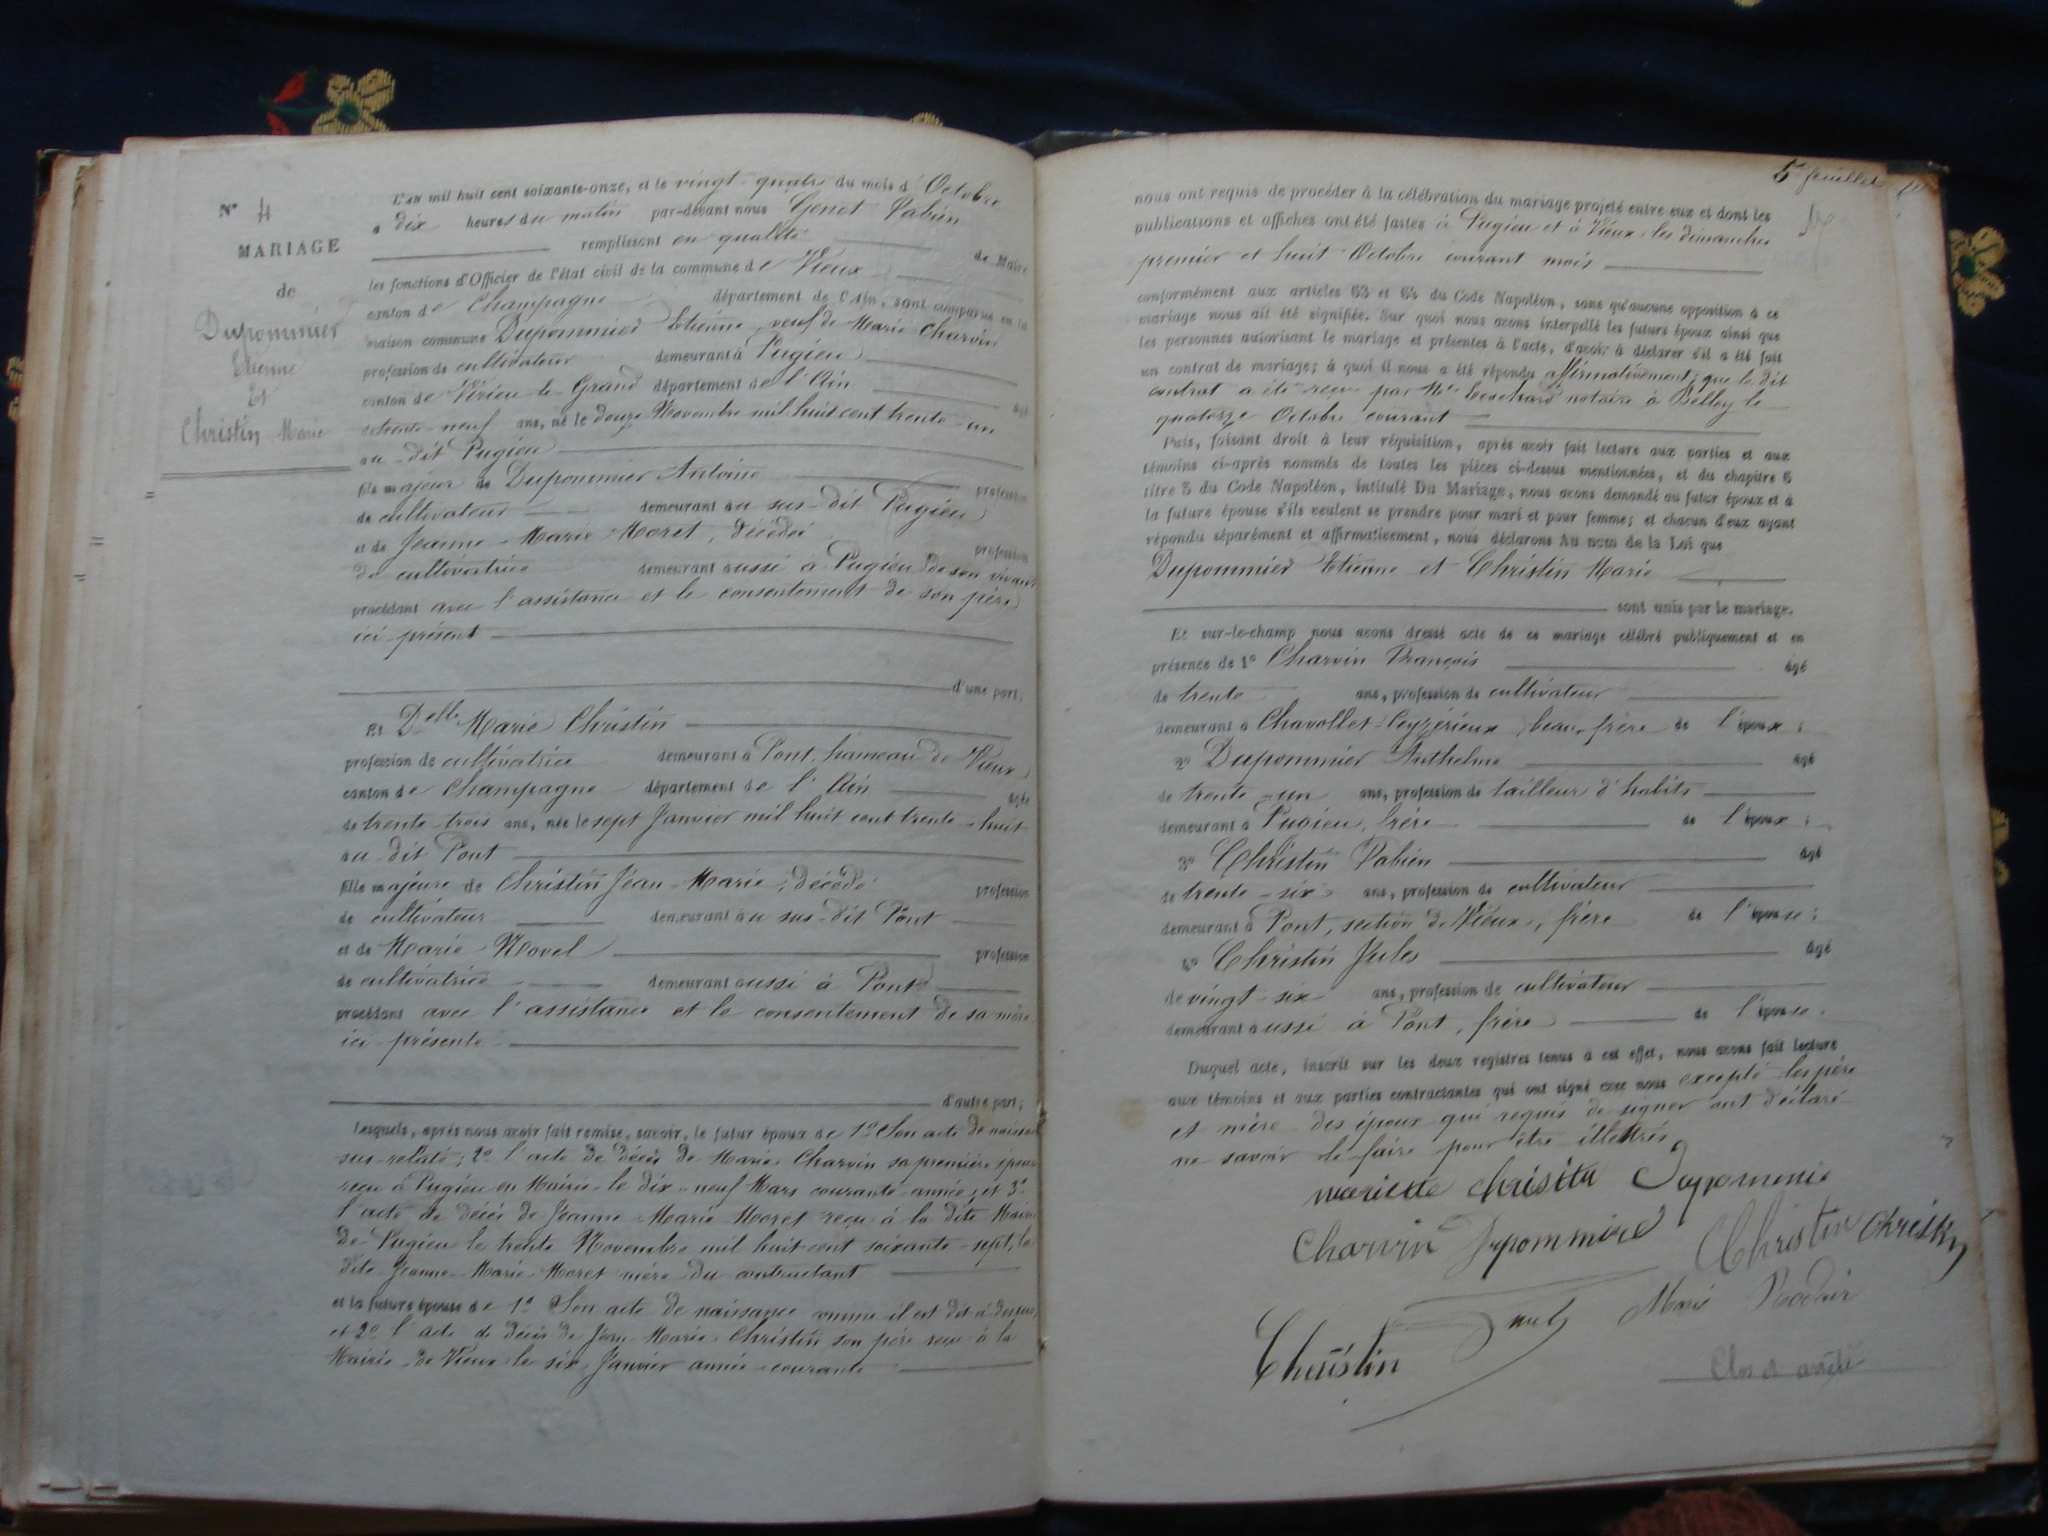 N° 4
MARIAGE
de
Dupommier
Etienne
Et
Christin Marie
L'an mil huit cent soixante-onze, et le vingt-quatre du mois d'Octobre
à dix heures du matin par-devant nous Genot Fabien
remplissant en qualité de Maire
les fonctions d'Officier de l'état civil de la commune de Vieux
canton de Champagne département de l'Ain, sont comparus en la
maison commune Dupommier Etienne, veuf de Marie Charvin
profession de cultivateur demeurant à Pugieu
canton de Virieu-le-Grand département de l'Ain âgé
de trente-neuf ans, né le douze Novembre mil huit cent trente-un
au-dit Pugieu
fils majeur de Dupommier Antoine profession
de cultivateur demeurant au sus-dit Pugieu
et de Jeanne-Marie Moret, décédée profession
de cultivatrice demeurant aussi à Pugieu de son vivant
procédant avec l'assistance et le consentement de son père
ici-présent
d'une part;
Et Delle Marie Christin
profession de cultivatrice demeurant à Pont, hameau de Vieux
canton de Champagne département de l'Ain âgée
de trente-trois ans, née le sept Janvier mil huit cent trente-huit
au-dit Pont
fille majeure de Christin Jean-Marie, décédé profession
de cultivateur demeurant au sus-dit Pont
et de Marie Novel profession
de cultivatrice demeurant aussi à Pont
procédant avec l'assistance et le consentement de sa mère
ici-présente
d'autre part;
lesquels, après nous avoir fait remise, savoir, le futur époux de 1° Son acte de naissance
sus-relaté; 2° l'acte de décès de Marie Charvin sa première épouse
reçu à Pugieu en Mairie le dix-neuf Mars courante année; et 3°
l'acte de décès de Jeanne-Marie Moret reçu à la dite Mairie
de Pugieu le trente Novembre mil huit cent soixante-sept, la
dite Jeanne-Marie Moret mère du contractant
et la future épouse de 1° Son acte de naissance comme il est dit ci-dessus,
et 2° l'acte de décès de Jean-Marie Christin son père reçu à la
Mairie de Vieux le six Janvier année courante
5e feuillet
nous ont requis de procéder à la célébration du mariage projeté entre eux et dont les
publications et affiches ont été faites à Pugieu et à Vieux les dimanches
premier et huit Octobre courant mois
conformément aux articles 63 et 64 du Code Napoléon, sans qu'aucune opposition à ce
mariage nous ait été signifiée. Sur quoi nous avons interpellé les futurs époux ainsi que
les personnes autorisant le mariage et présentes à l'acte, d'avoir à déclarer s'il a été fait
un contrat de mariage; à quoi il nous a été répondu affirmativement; que le dit
contrat a été reçu par Me notaire à Belley le
quatorze Octobre courant
Puis, faisant droit à leur réquisition, après avoir fait lecture aux parties et aux
témoins ci-après nommés de toutes les pièces ci-dessus mentionnées, et du chapitre 6
titre 5 du Code Napoléon, intitulé Du Mariage, nous avons demandé au futur époux et à
la future épouse s'ils veulent se prendre pour mari et pour femme; et chacun d'eux ayant
répondu séparément et affirmativement, nous déclarons Au nom de la Loi que
Dupommier Etienne et Christin Marie
sont unis par le mariage.
Et sur-le-champ nous avons dressé acte de ce mariage célébré publiquement et en
présence de 1° Charvin François âgé
de trente ans, profession de cultivateur
demeurant à Chavollet-Ceyzérieux, beau-frère de l'époux;
2° Dupommier Anthelme âgé
de trente-un ans, profession de tailleur d'habits
demeurant à Pugieu, frère de l'époux;
3° Christin Fabien âgé
de trente-six ans, profession de cultivateur
demeurant à Pont, section de Vieux, frère de l'épouse;
4° Christin Jules âgé
de vingt-six ans, profession de cultivateur
demeurant aussi à Pont, frère de l'épouse.
Duquel acte, inscrit sur les deux registres tenus à cet effet, nous avons fait lecture
aux témoins et aux parties contractantes qui ont signé avec nous excepté les père
et mère des époux qui requis de signer ont déclaré
ne savoir le faire pour être illettrés
mariette christin Dupommie
Charvin Dupommier Christin Christin
Marie
Christin
Clos et arrêté